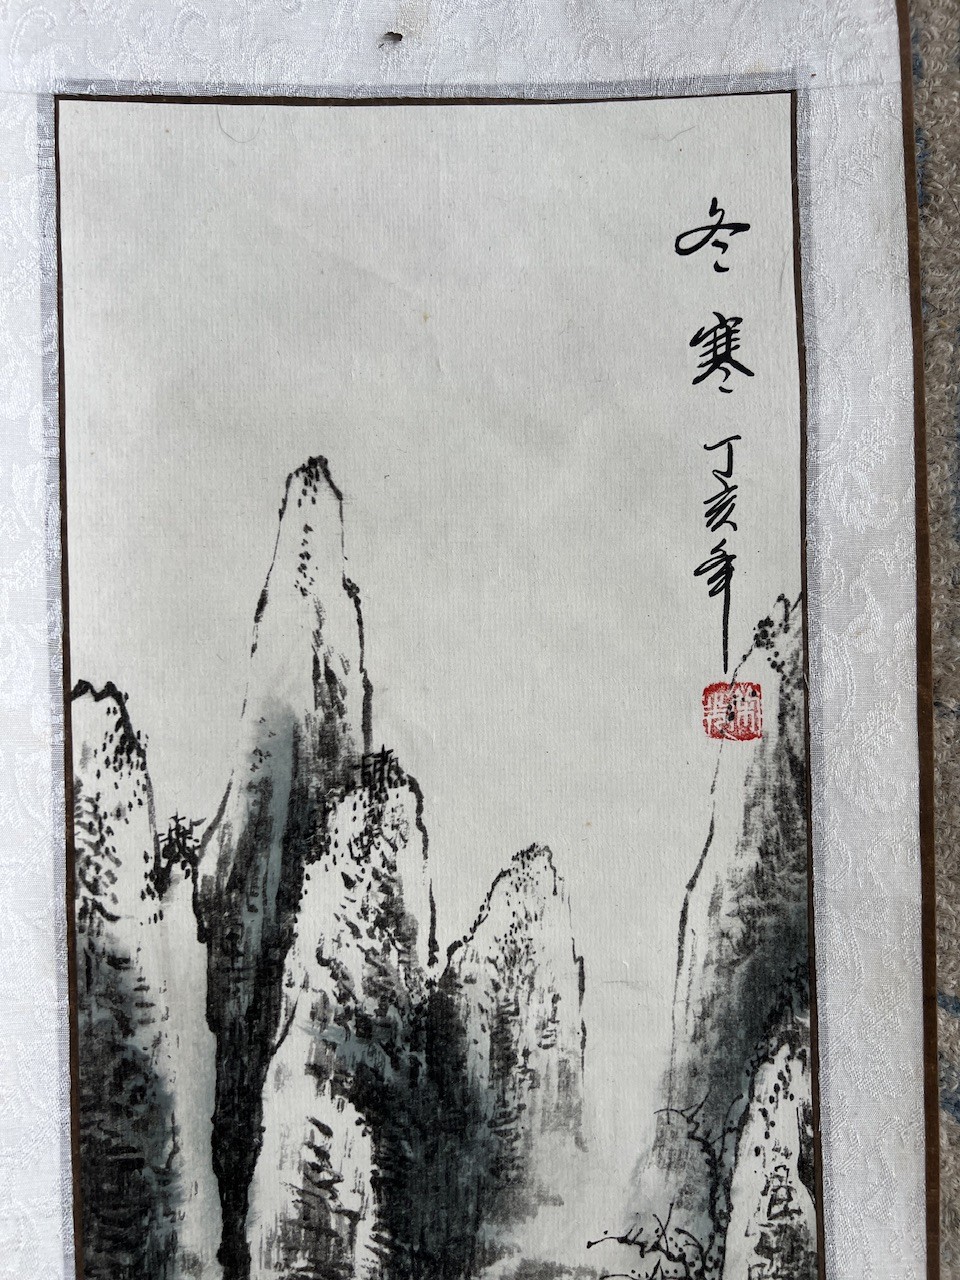 冬寒
丁亥年